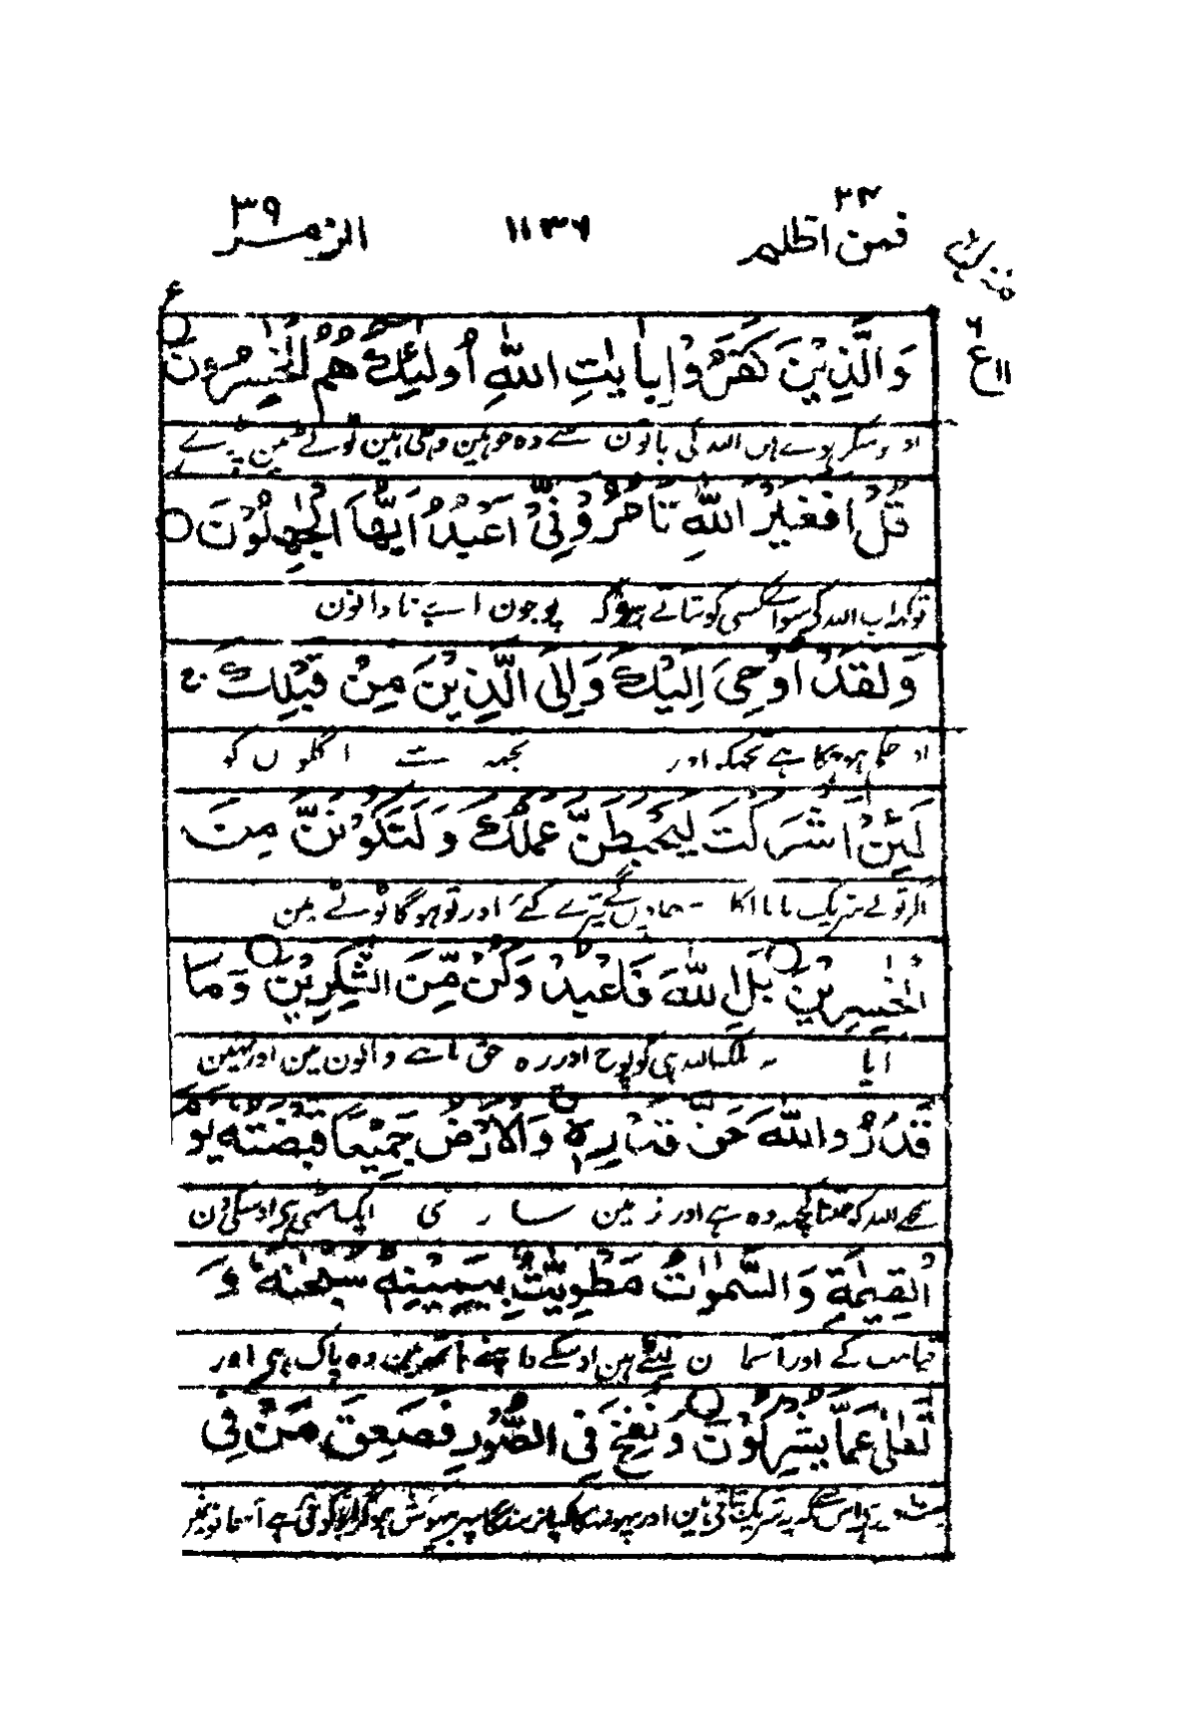 فمن اظلم ۲۴ ۱۱۳۶ الزمر ۳۹
منزل
وَالَّذِيْنَ كَفَرُوْا بِاٰيٰتِ اللّٰهِ اُولٰٓئِكَ هُمُ الْخٰسِرُوْنَ
اللہ کی باتون سے وہ جو ہین وہی ہین ٹوٹے مین پڑے
قُلْ اَفَغَيْرَ اللّٰهِ تَاْمُرُوْٓنِّيْٓ اَعْبُدُ اَيُّهَا الْجٰهِلُوْنَ
تو کہہ اب اللہ کے سوائے کسی کو بتاتے ہو کہ پوجون اے نادانون
وَلَقَدْ اُوْحِيَ اِلَيْكَ وَاِلَى الَّذِيْنَ مِنْ قَبْلِكَ
حکم ہو چکا ہے تجھکو اور تجھہ سے اگلوں کو
لَئِنْ اَشْرَكْتَ لَيَحْبَطَنَّ عَمَلُكَ وَلَتَكُوْنَنَّ مِنَ
اگر تونے شریک مانا تیرے کئے اور تو ہوگا ٹوٹے مین
الْخٰسِرِيْنَ بَلِ اللّٰهَ فَاعْبُدْ وَكُنْ مِّنَ الشّٰكِرِيْنَ وَمَا
آیا نہ بلکہ اللہ ہی کو پوج اور رہ حق ماننے والون مین اور نہین
قَدَرُوا اللّٰهَ حَقَّ قَدْرِهٖ وَالْاَرْضُ جَمِيْعًا قَبْضَتُهٗ يَوْ
سمجھے اللہ کو جتنا کچھہ وہ ہے اور زمین ساری ایک مٹھی ہی اوسکی دن
الْقِيٰمَةِ وَالسَّمٰوٰتُ مَطْوِيّٰتٌۢ بِيَمِيْنِهٖ سُبْحٰنَهٗ وَ
قیامت کے اور آسمان لپٹے ہین اوسکے داہنے ہاتھہ مین وہ پاک ہی اور
تَعٰلٰى عَمَّا يُشْرِكُوْنَ وَنُفِخَ فِى الصُّوْرِ فَصَعِقَ مَنْ فِى
اس سے کہ یہ شریک بتاتے ہین اور پھونکا پھر بیہوش ہو کوئی ہے